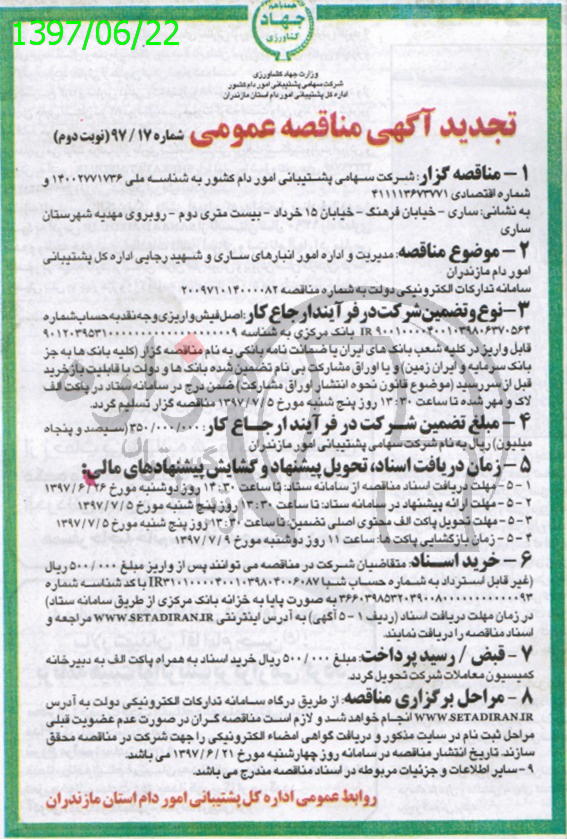 1397/06/22
جهاد
کشاورزی
وزارت جهاد کشاورزی
شرکت سهامی پشتیبانی امور دام کشور
اداره کل پشتیبانی امور دام استان مازندران
تجدید آگهی مناقصه عمومی شماره ۹۷/۱۷ (نوبت دوم)
۱- مناقصه گزار: شرکت سهامی پشتیبانی امور دام کشور به شناسه ملی ۱۴۰۰۲۷۷۱۷۳۶ و
شماره اقتصادی ۴۱۱۱۱۳۶۷۳۷۷۱
به نشانی: ساری - خیابان فرهنگ - خیابان ۱۵ خرداد - بیست متری دوم - روبروی مهدیه شهرستان
ساری
۲- موضوع مناقصه: مدیریت و اداره امور انبارهای ساری و شهید رجایی اداره کل پشتیبانی
امور دام مازندران
سامانه تدارکات الکترونیکی دولت به شماره مناقصه ۲۰۰۹۷۱۰۱۴۰۰۰۰۸۲
۳- نوع و تضمین شرکت در فرآیند ارجاع کار: اصل فیش واریزی وجه نقد به حساب شماره
IR ۹۰۰۱۰۰۰۰۴۰۰۱۰۳۹۸۰۶۳۷۰۵۶۴ بانک مرکزی به شناسه
قابل واریز در کلیه شعب بانک های ایران یا ضمانت نامه بانکی به نام مناقصه گزار (کلیه بانک ها به جز
بانک سرمایه و ایران زمین) و یا اوراق مشارکت بی نام تضمین شده بانک ها و دولت با قابلیت بازخرید
قبل از سررسید (موضوع قانون نحوه انتشار اوراق مشارکت) ضمن درج در سامانه ستاد در پاکت الف
لاک و مهر شده تا ساعت ۱۳:۳۰ روز پنج شنبه مورخ ۱۳۹۷/۷/۵ مناقصه گزار تسلیم گردد.
۴- مبلغ تضمین شرکت در فرآیند ارجاع کار: ۳۵۰/۰۰۰/۰۰۰ (سیصد و پنجاه
میلیون) ریال به نام شرکت سهامی پشتیبانی امور مازندران
۵- زمان دریافت اسناد، تحویل پیشنهاد و گشایش پیشنهادهای مالی:
۵-۱- مهلت دریافت اسناد مناقصه از سامانه ستاد: تا ساعت ۱۴:۳۰ روز دوشنبه مورخ ۱۳۹۷/۶/۲۶
۵-۲- مهلت ارائه پیشنهاد در سامانه ستاد: تا ساعت ۱۳:۳۰ روز پنج شنبه مورخ ۱۳۹۷/۷/۵
۵-۳- مهلت تحویل پاکت الف محتوی اصلی تضمین: تا ساعت ۱۳:۳۰ روز پنج شنبه مورخ ۱۳۹۷/۷/۵
۵-۴- زمان بازگشایی پاکت ها: ساعت ۱۱ روز دوشنبه مورخ ۱۳۹۷/۷/۹
۶- خرید اسناد: متقاضیان شرکت در مناقصه می توانند پس از واریز مبلغ ۵۰۰/۰۰۰ ریال
(غیر قابل استرداد به شماره حساب شبا IR۳۱۰۱۰۰۰۰۴۰۰۱۰۳۹۸۰۴۰۰۶۰۸۷ با کد شناسه شماره
به صورت پایا به خزانه بانک مرکزی از طریق سامانه ستاد)
در زمان مهلت دریافت اسناد (ردیف ۱-۵ آگهی) به آدرس اینترنتی WWW.SETADIRAN.IR مراجعه و
اسناد مناقصه را دریافت نمایند.
۷- قبض / رسید پرداخت: مبلغ ۵۰۰/۰۰۰ ریال خرید اسناد به همراه پاکت الف به دبیرخانه
کمیسیون معاملات شرکت تحویل گردد.
۸- مراحل برگزاری مناقصه: از طریق درگاه سامانه تدارکات الکترونیکی دولت به آدرس
WWW.SETADIRAN.IR انجام خواهد شد و لازم است مناقصه گران در صورت عدم عضویت قبلی
مراحل ثبت نام در سایت مذکور و دریافت گواهی امضاء الکترونیکی را جهت شرکت در مناقصه محقق
سازند. تاریخ انتشار مناقصه در سامانه روز چهارشنبه مورخ ۱۳۹۷/۶/۲۱ می باشد.
۹- سایر اطلاعات و جزئیات مربوطه در اسناد مناقصه مندرج می باشد.
روابط عمومی اداره کل پشتیبانی امور دام استان مازندران